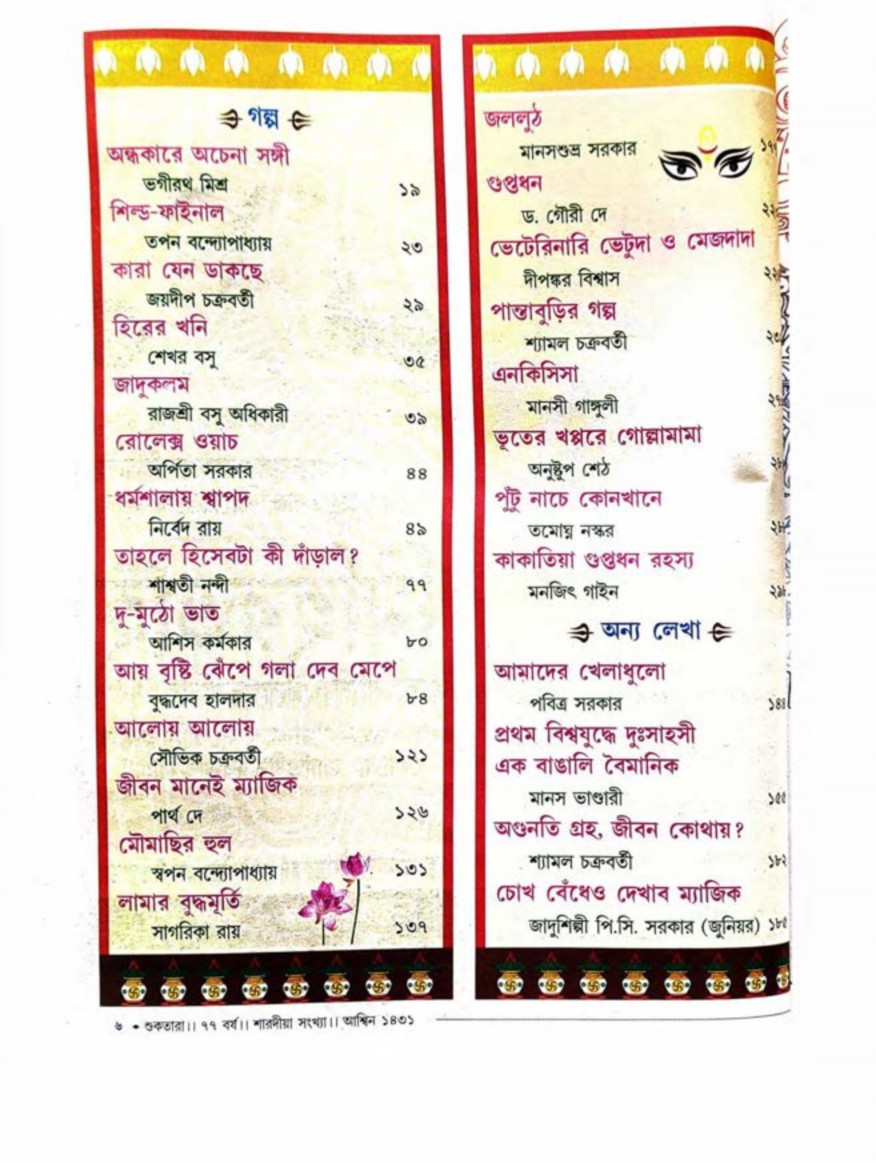 গল্প
অন্ধকারে অচেনা সঙ্গী
ভগীরথ মিশ্র ১৯
শিল্ড-ফাইনাল
তপন বন্দ্যোপাধ্যায় ২৩
কারা যেন ডাকছে
জয়দীপ চক্রবর্তী ২৯
হিরের খনি
শেখর বসু ৩৫
জাদুকলম
রাজশ্রী বসু অধিকারী ৩৯
রোলেক্স ওয়াচ
অর্পিতা সরকার ৪৪
ধর্মশালায় শ্বাপদ
নির্বেদ রায় ৪৯
তাহলে হিসেবটা কী দাঁড়াল?
শাশ্বতী নন্দী ৭৭
দু-মুঠো ভাত
আশিস কর্মকার ৮০
আয় বৃষ্টি ঝেঁপে গলা দেব মেপে
বুদ্ধদেব হালদার ৮৪
আলোয় আলোয়
সৌভিক চক্রবর্তী ১২১
জীবন মানেই ম্যাজিক
পার্থ দে ১২৬
মৌমাছির হুল
স্বপন বন্দ্যোপাধ্যায় ১৩১
লামার বুদ্ধমূর্তি
সাগরিকা রায় ১৩৭
জললুঠ
মানসশুভ্র সরকার
গুপ্তধন
ড. গৌরী দে
ভেটেরিনারি ভেটুদা ও মেজদাদা
দীপঙ্কর বিশ্বাস
পান্তাবুড়ির গল্প
শ্যামল চক্রবর্তী
এনকিসিসা
মানসী গাঙ্গুলী
ভূতের খপ্পরে গোল্লামামা
অনুষ্টুপ শেঠ
পুঁটু নাচে কোনখানে
তমোঘ্ন নস্কর
কাকাতিয়া গুপ্তধন রহস্য
মনজিৎ গাইন
অন্য লেখা
আমাদের খেলাধুলো
পবিত্র সরকার ১৪৪
প্রথম বিশ্বযুদ্ধে দুঃসাহসী
এক বাঙালি বৈমানিক
মানস ভাণ্ডারী ১৫৫
অগুনতি গ্রহ, জীবন কোথায়?
শ্যামল চক্রবর্তী ১৮২
চোখ বেঁধেও দেখাব ম্যাজিক
জাদুশিল্পী পি.সি. সরকার (জুনিয়র) ১৮৫
৬ • শুকতারা।। ৭৭ বর্ষ।। শারদীয়া সংখ্যা।। আশ্বিন ১৪৩১